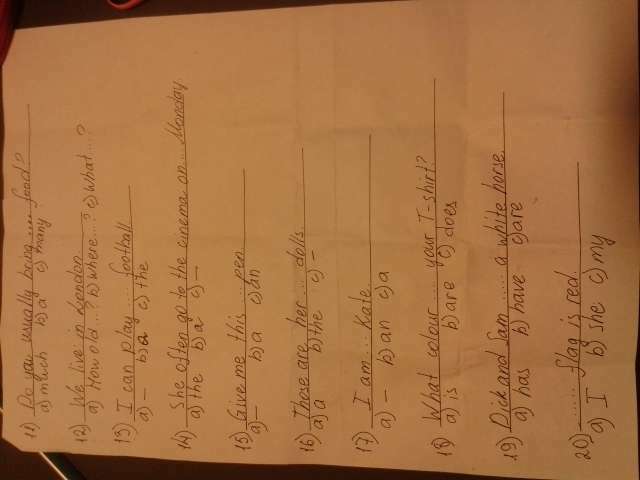 11) Do you usually bring ..... food?
a) much b) a c) many
12) We live in London
a) How old ...? b) where ...? c) what ....?
13) I can play .... football
a) – b) a c) the
14) She often go to the cinema on .... Monday
a) the b) a c) –
15) Give me this ... pen
a) – b) a c) an
16) These are her .... dolls.
a) a b) the c) –
17) I am ... Kate.
a) – b) an c) a
18) What colour .... your T-shirt?
a) is b) are c) does
19) Dick and Sam ..... a white horse.
a) has b) have c) are
20) ....... flag is red.
a) I b) she c) my